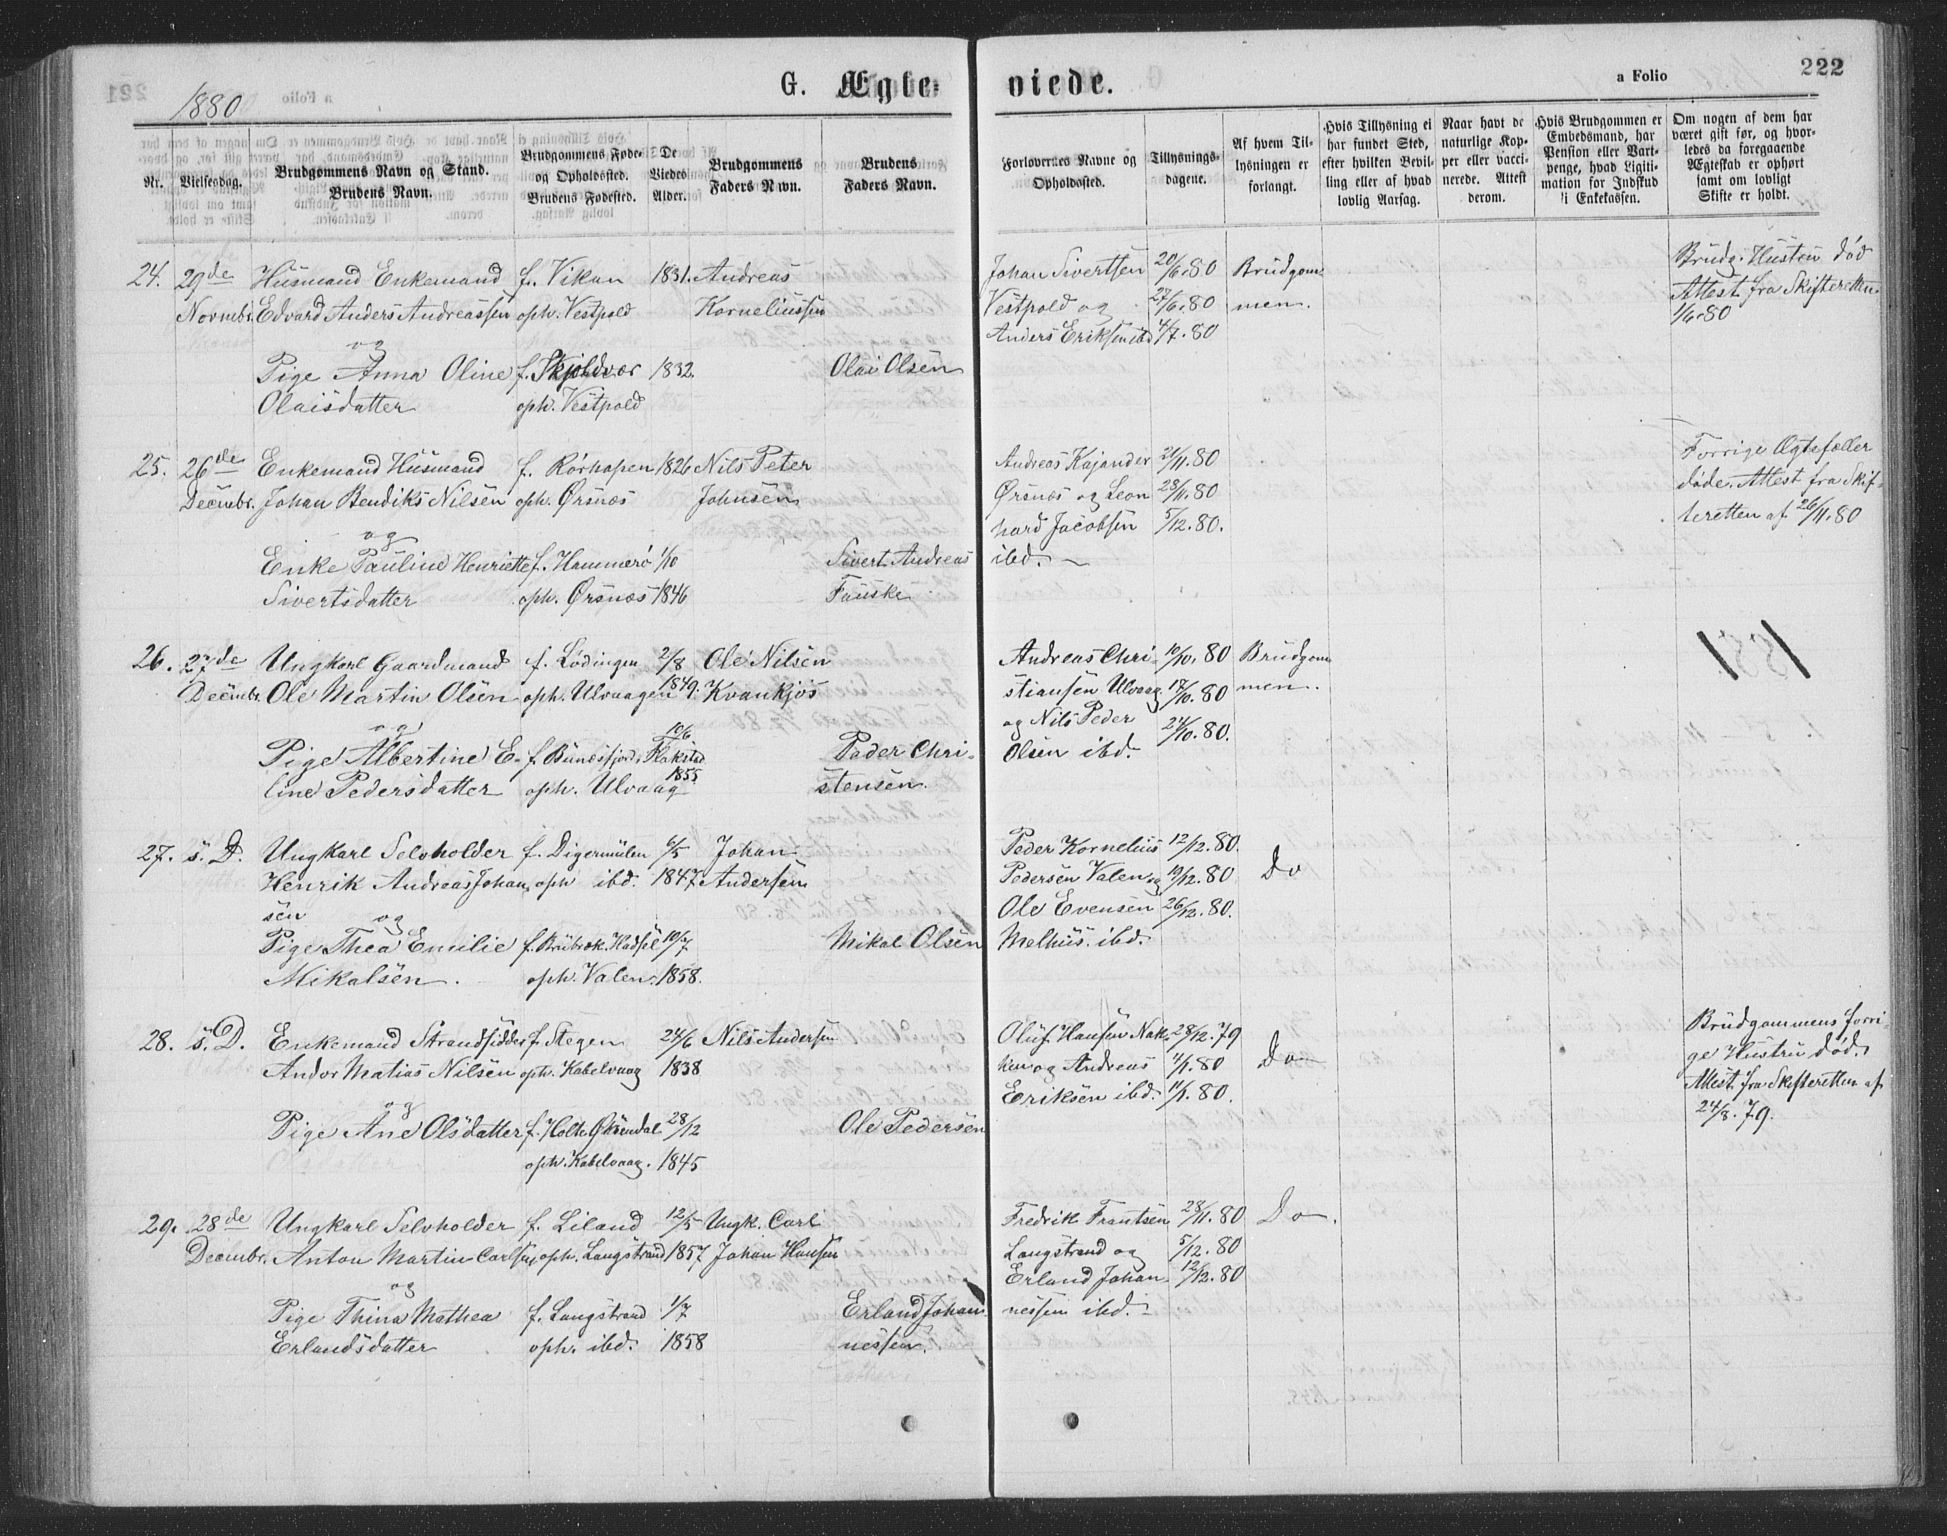 1880
G. Ægte-
viede.
a Folio
222
Nr.
Vielsesdag.
Brudgommens Navn og Stand.
Brudens Navn.
Brudgommens Føde-
og Opholdssted.
Brudens Fødested.
De
Viedes
Alder.
Brudgommens
Faders Navn.
Brudens
Faders Navn.
Forlovernes Navne og
Opholdssted.
Tillysnings-
dagene.
Af hvem Til-
lysningen er
forlangt.
Hvis Tillysning ei
har fundet Sted,
efter hvilken Bevil-
ling eller af hvad
lovlig Aarsag.
Naar havt de
naturlige Kop-
per eller vacci-
nerede. Attest
derom.
Hvis Brudgommen er
Embedsmand, har
Pension eller Vart-
penge, hvad Ligiti-
mation for Indskud
i Enkekassen.
Om nogen af dem har
været gift før, og hvor-
ledes da foregaaende
Ægteskab er ophørt
samt om lovligt
Skifte er holdt.
24. 29de Husmand Enkemand f. Vikan 1831. Andreas
Novmbr. Edvard Anders Andreassen oph. Vestpold Korneliussen
og
Pige Anna Oline f. Skjoldvær 1832. Olai Olsen
Olaisdatter oph. Vestpold
Johan Sivertsen 20/6.80 Brudgom
Vestpold og 27/6.80 men.
Anders Eriksen ibd 4/7.80
Brudg. Hustru død
Attest fra Skifteretten
1/6.80
25. 26de Enkemand Husmand f. Rørhopen 1826 Nils Peter
Decmbr. Johan Bendiks Nilsen oph. Ørsnæs Johnsen
og
Enke Pauline Henriette f. Hammerö 1/10 Sivert Andreas
Sivertsdatter oph. Ørsnæs 1846 Fauske
Andreas Kajander 21/11.80
Ørsnæs og Leon 28/11.80
hard Jacobsen 5/12.80.
ibd.
Forrige Ægtefæller
døde. Attest fra Skif-
teretten af 26/11.80
26. 27de Ungkarl Gaardmand f. Lødingen 2/8 Ole Nilsen
Decmbr. Ole Martin Olsen oph. Ulvaagen 1849. Kvankjøs
og
Pige Albertine E- f. Bunesfjord, Flakstad 10/6 Peder Chri-
line Pedersdatter oph. Ulvaag 1855 stensen.
Andreas Chri- 10/10.80 Brudgom
stiansen Ulvaag 17/10.80 men.
og Nils Peder 24/10.80.
Olsen ibd.
1881
27. s. D. Ungkarl Selvholder f. Digermulen 6/5 Johan
Henrik Andreas Johan oph ibd. 1847 Andersen
sen og
Pige Thea Emilie f. Bruborok. Hadsel 10/7 Mikal Olsen
Mikalsen. oph. Valen. 1858.
Peder Kornelius 12/12.80.
Pedersen Valen og 19/12.80 Do
Ole Evensen 26/12.80.
Melhus. ibd.
28. s. D. Enkemand Strandsidder f. Stegen 24/6 Nils Andersen
Andor Matias Nilsen oph. Kabelvaag 1838
og
Pige Ane Olsdatter f. Holte, 28/12 Ole Pedersen
oph. Kabelvaag. 1845
Oluf Hansen Nak- 28/12.79
ken og Andreas 4/1.80 Do
Eriksen ibd. 11/1.80.
Brudgommens forri-
ge Hustru død.
Attest fra Skifteretten af
24/8.79.
29. 28de Ungkarl Selvholder f. Liland 12/5 Ungk. Carl
Decmbr. Anton Martin Carlsen, oph. Langstrand 1857 Johan Hansen
og
Pige Thina Mathea f. Langstrand 1/7 Erland Johan
Erlandsdatter oph. ibd. 1858 nessen.
Fredrik Frantsen 28/11.80 Do.
Langstrand og 5/12.80
Erland Johan- 12/12.80
nessen ibd.